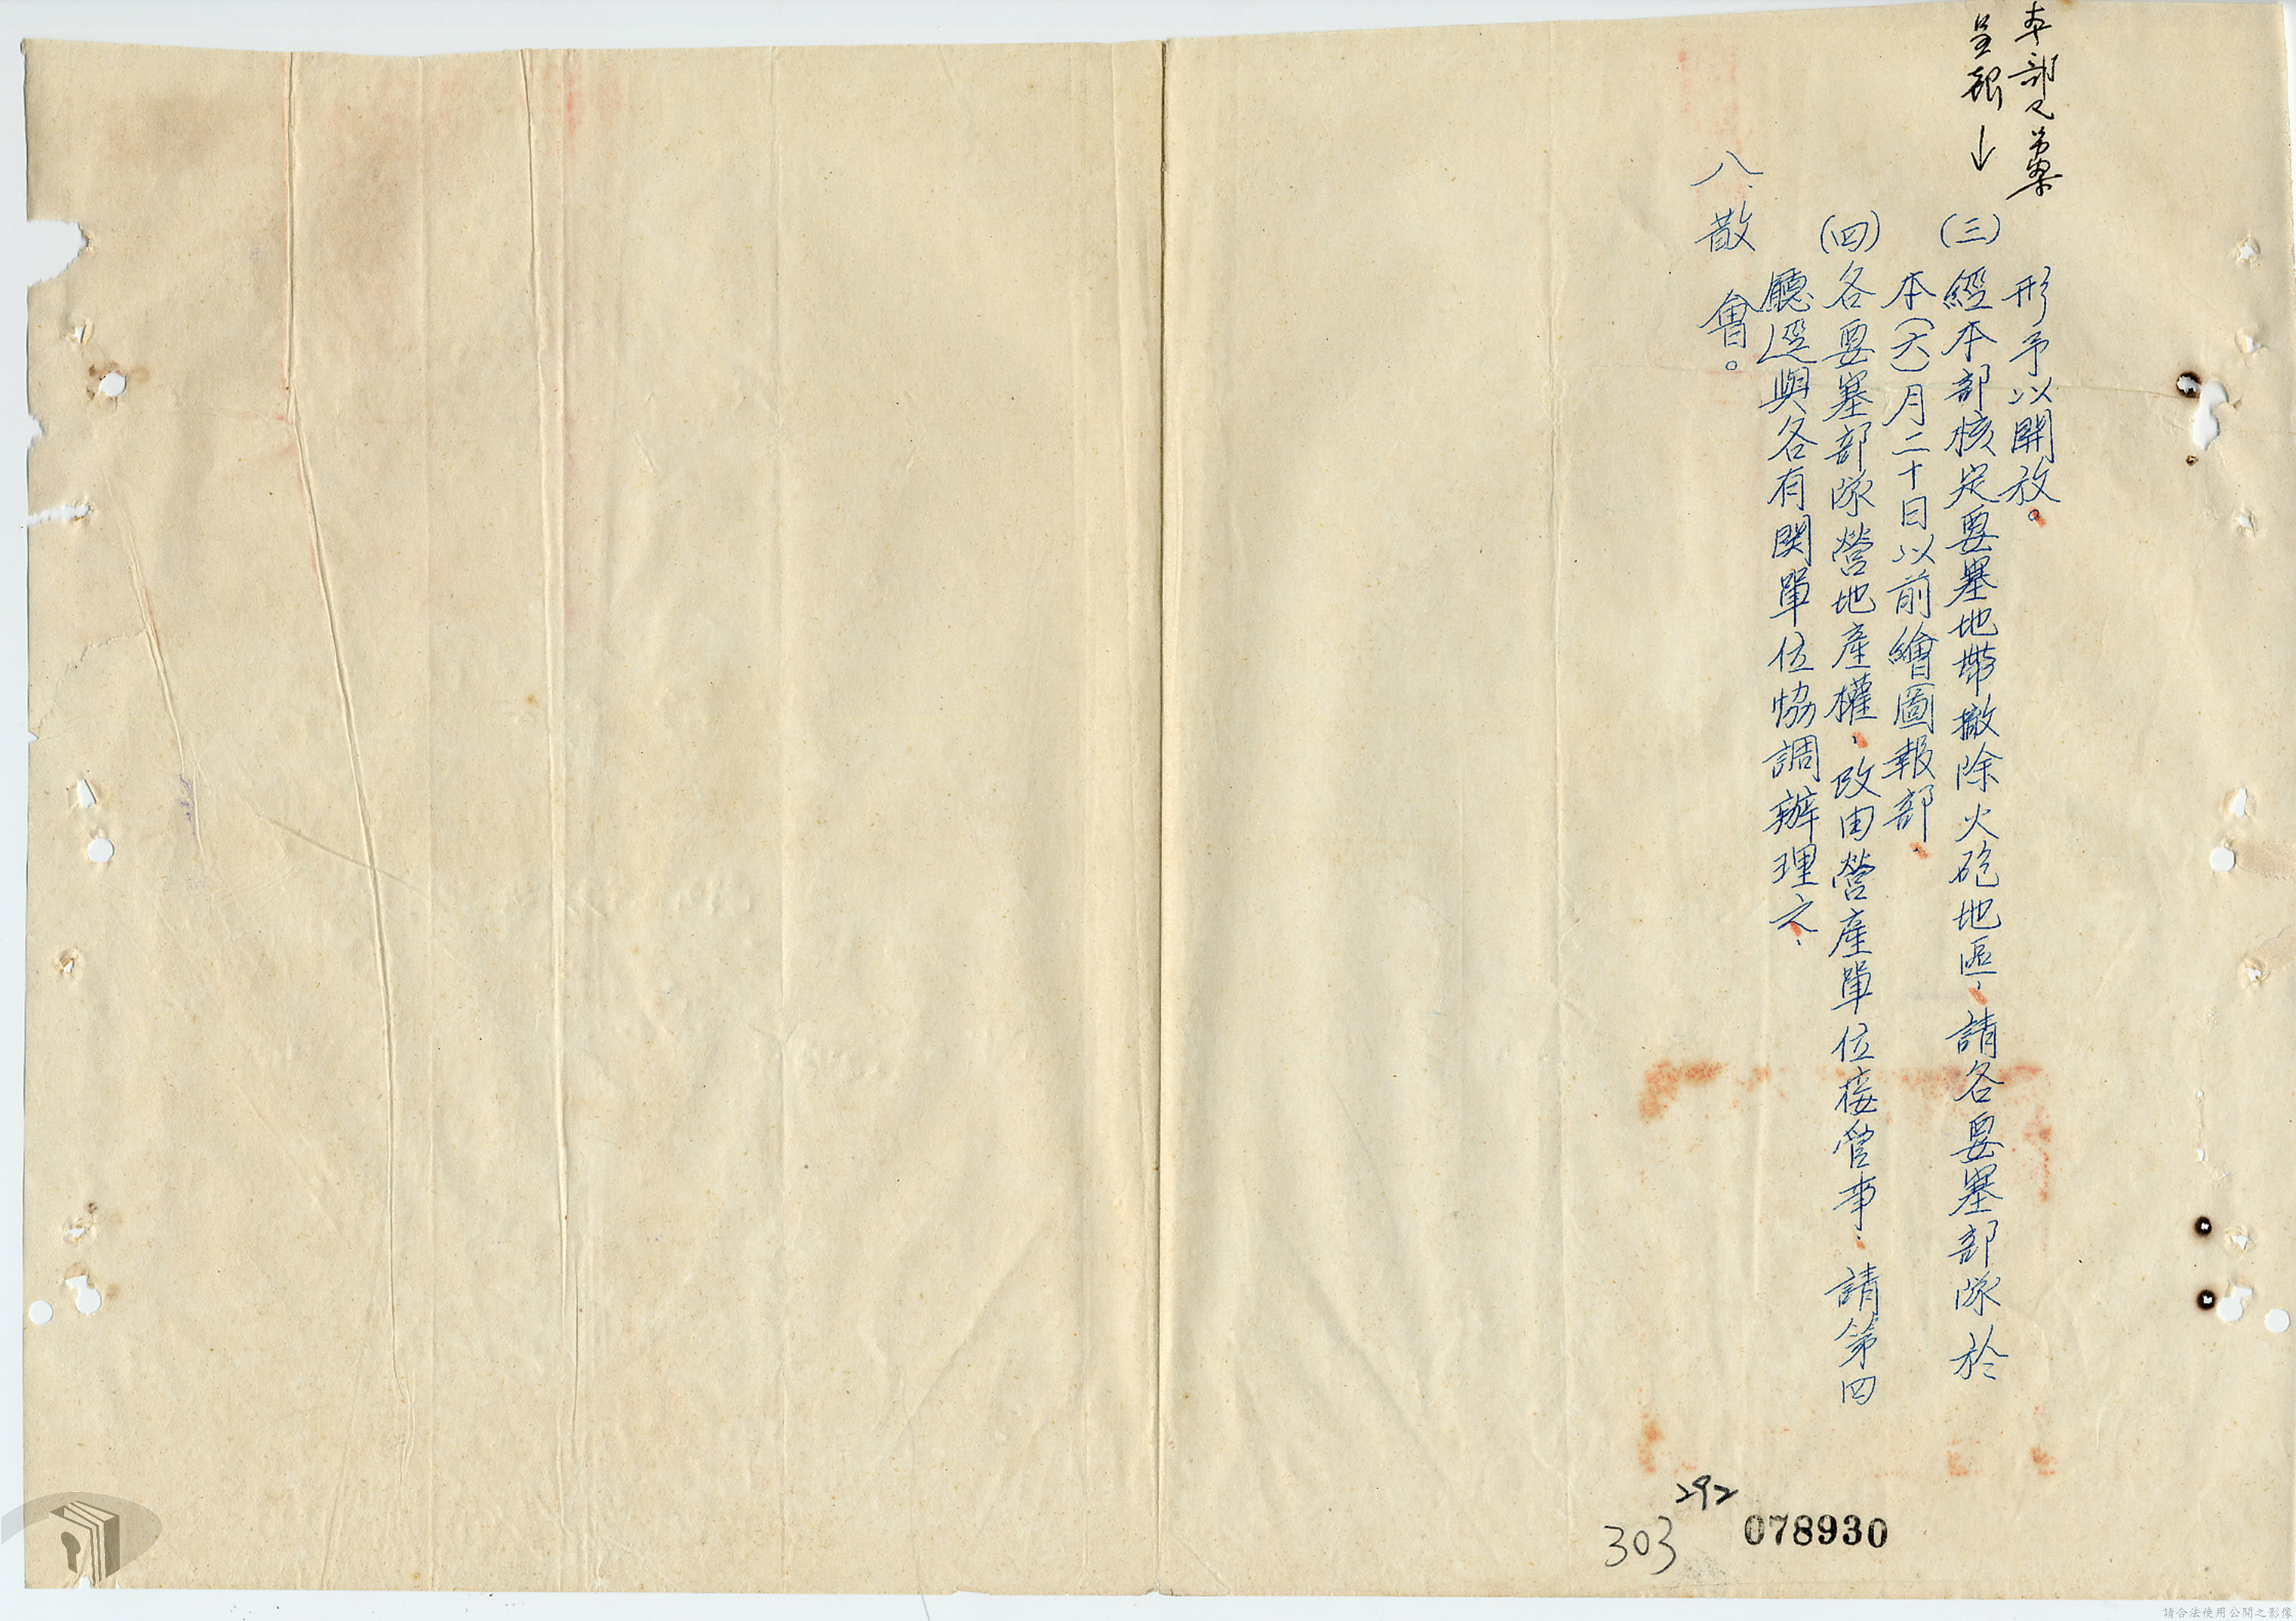 本部
呈報↓
形予以開放。
(三)經本部核定要塞地帶撤除火砲地區，請各要塞部隊於
本(六)月二十日以前繪圖報部、
(四)各要塞部隊營地產權，改由營產單位接管事，請第四
廳逕與各有関單位協調辦理之、
八、散會。
292
303
078930
請合法使用公開之影像